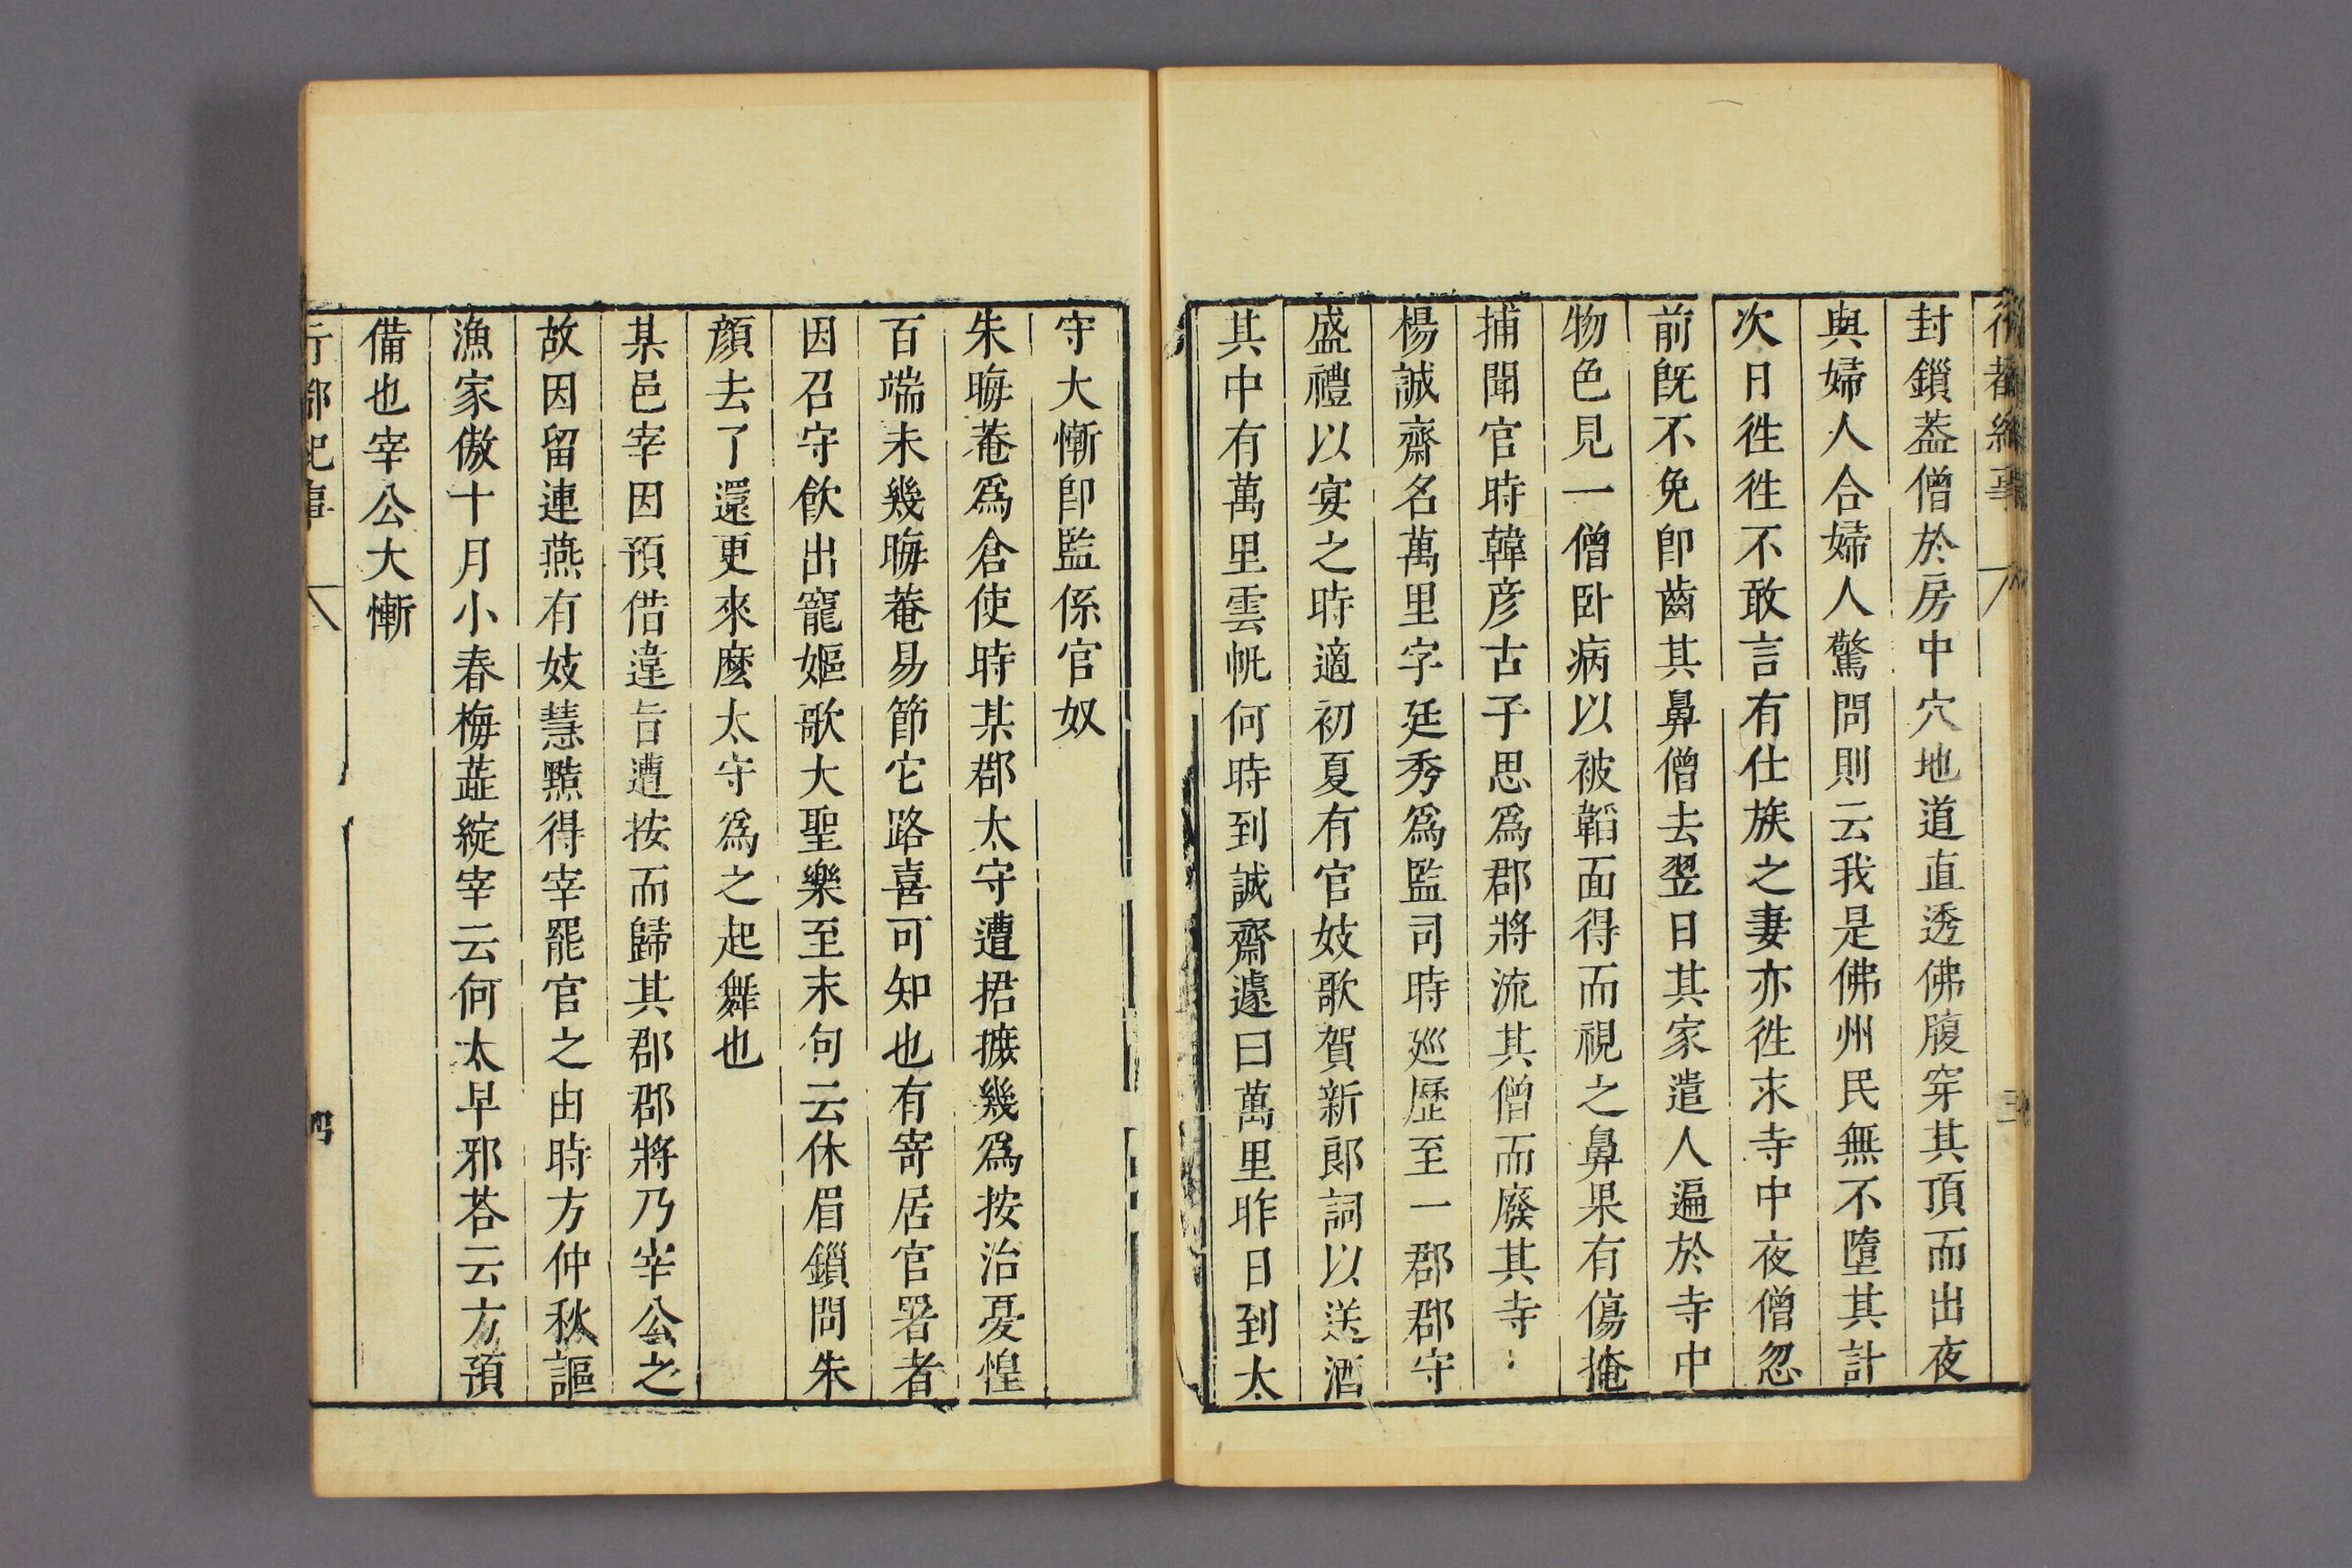 行都紀事
三
封鎻葢僧於房中穴地道直透佛腹穿其頂而出夜
與婦人合婦人驚問則云我是佛州民無不墮其計
次日徃徃不敢言有仕族之妻亦徃求寺中夜僧忽
前旣不免卽齒其鼻僧去翌日其家遣人遍於寺中
物色見一僧卧病以被韜面得而視之鼻果有傷掩
捕聞官時韓彦古子思爲郡將流其僧而廢其寺
楊誠齋名萬里字廷秀爲監司時廵歷至一郡郡守
盛禮以宴之時適初夏有官妓歌賀新郎詞以送酒
其中有萬里雲帆何時到誠齋遽曰萬里昨日到太
守大慚卽監係官奴
朱晦菴爲倉使時某郡太守遭捃摭幾爲按治憂惶
百端未幾晦菴易節它路喜可知也有寄居官署者
因召守飲出寵嫗歌大聖樂至末句云休眉鎻問朱
顔去了還更來麽太守爲之起舞也
某邑宰因預借違旨遭按而歸其郡郡將乃宰公之
故因留連燕有妓慧黠得宰罷官之由時方仲秋謳
漁家傲十月小春梅蕋綻宰云何太早邪荅云方預
備也宰公大慚
行都紀事
四